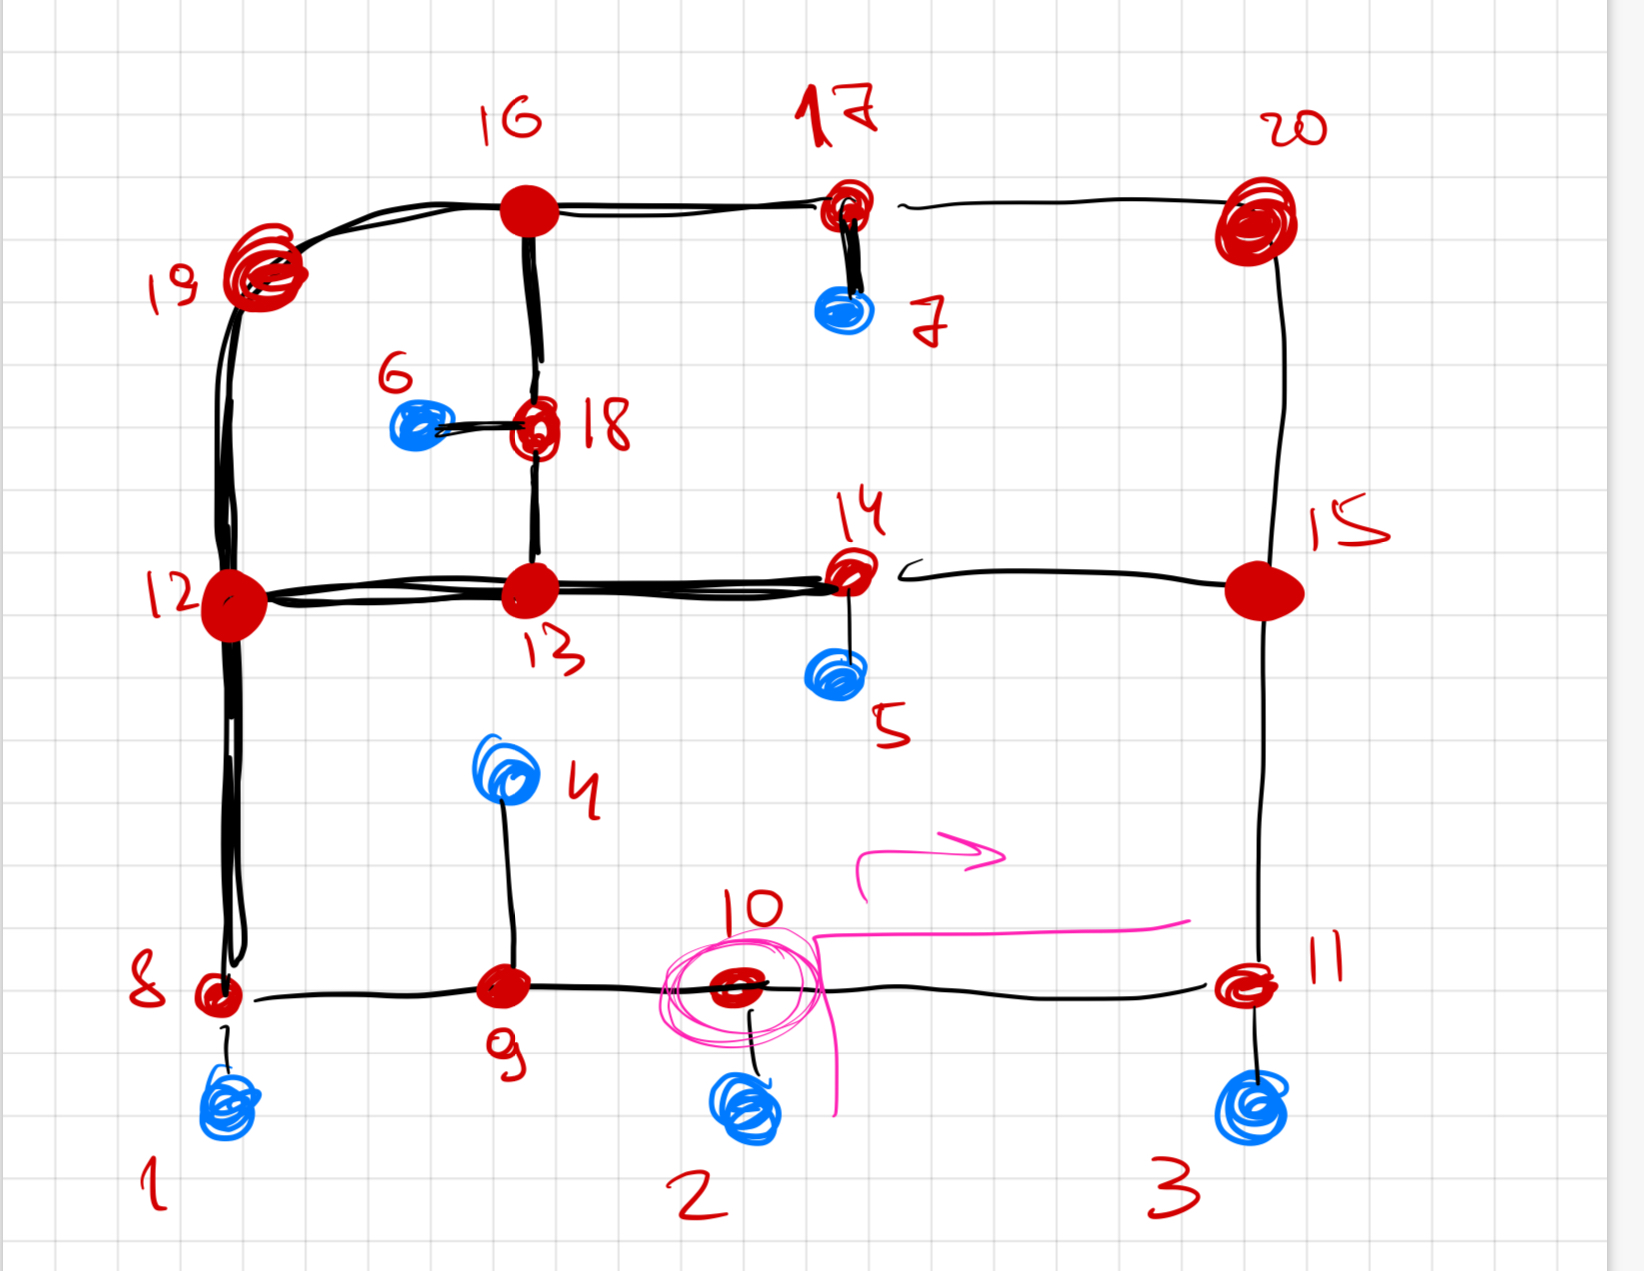 16 17 20
19
6 7
18
14
15
12
13
5
4
10
8 11
9
1 2 3